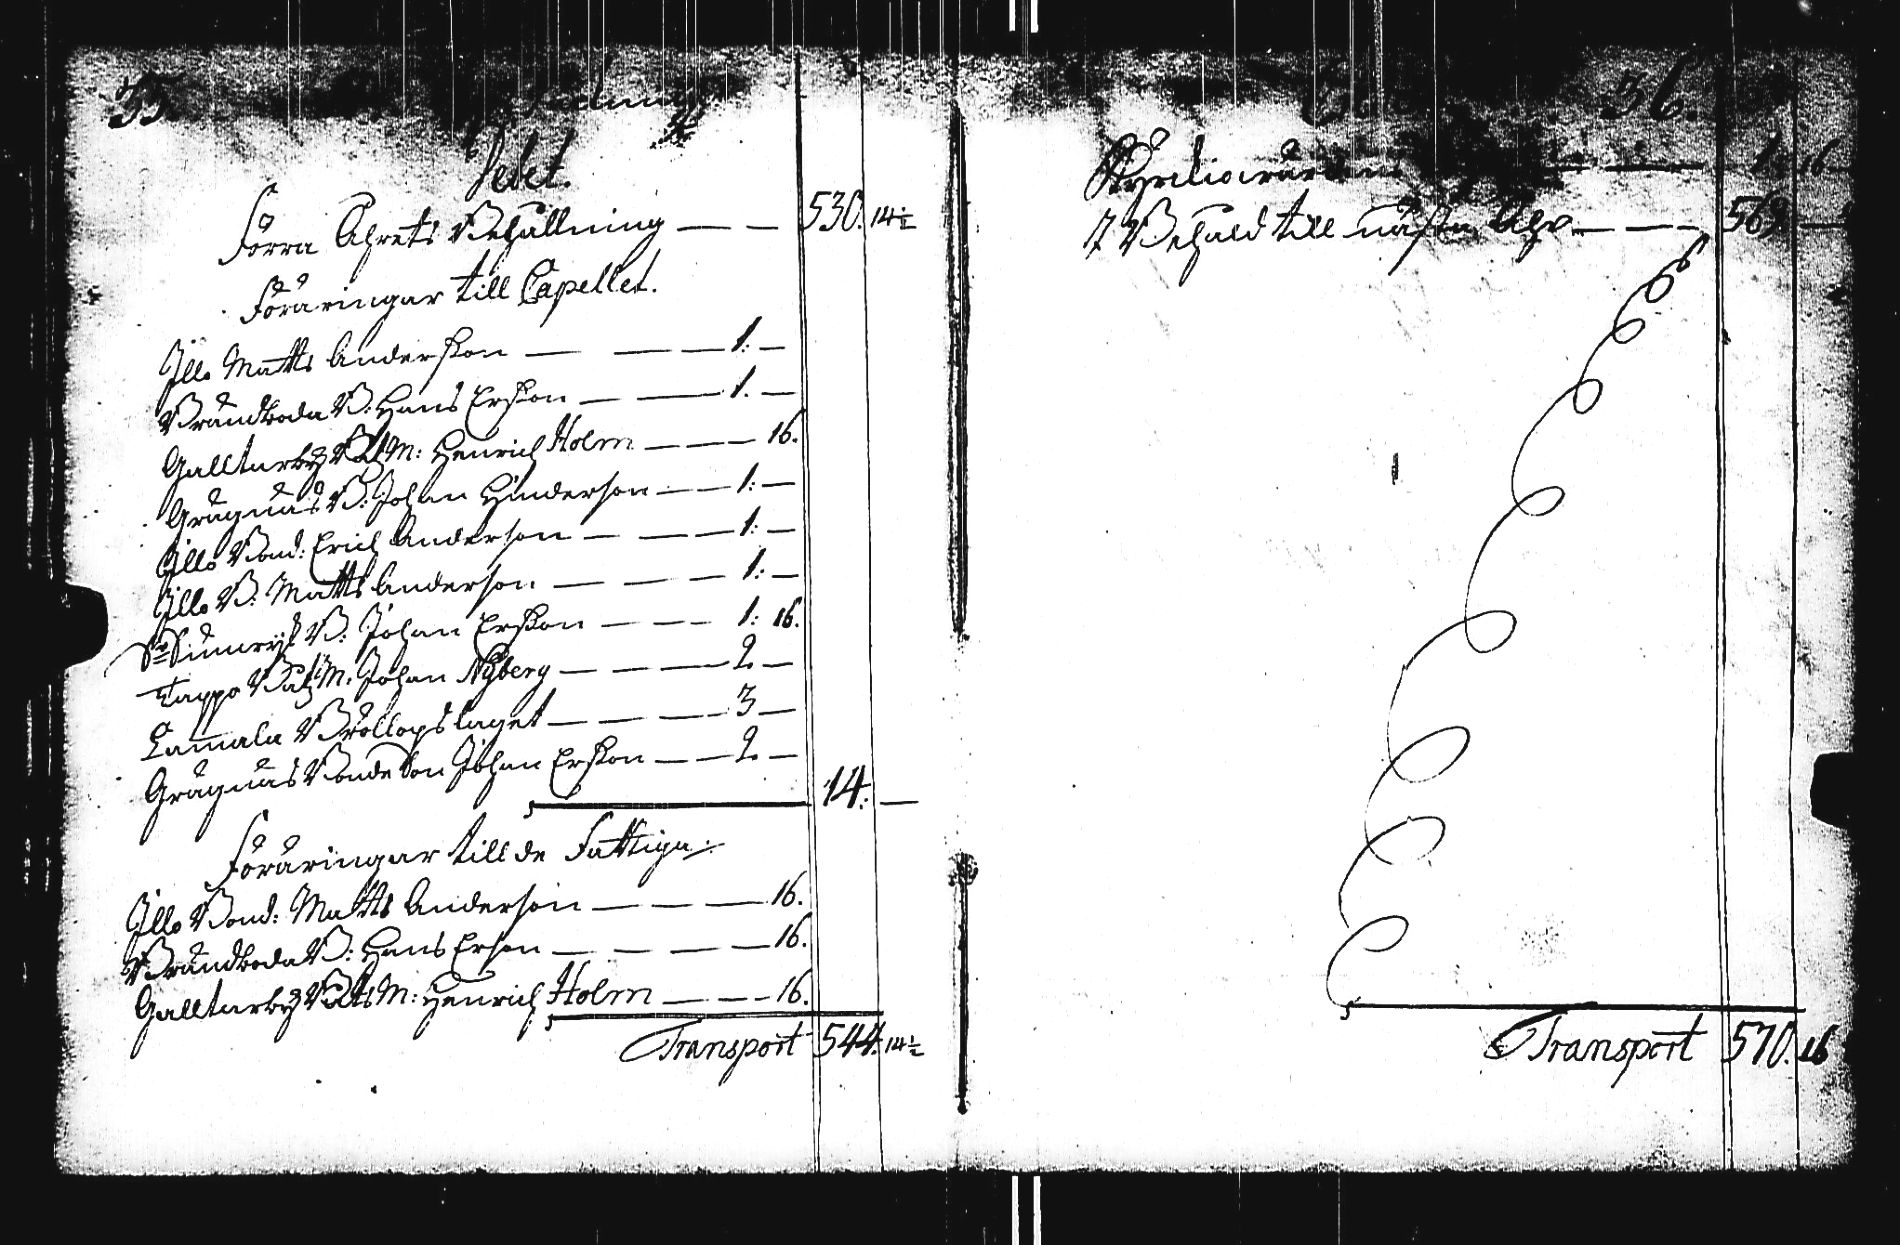 35.
Debet.
Förra Åhrets Behållning — — 530. 14½
Föräringar till Capellet.
Jllo Matts Andersson — — — 1: —
Brändboda B: Hans Ersson — — 1. —
Galltarby Båtsm: Henrich Holm — — — 16.
Grägnäs B: Johan Hinderson — — 1: —
Jllo Bond: Erich Anderson — — — 1: —
Jllo B: Matts Anderson — — — 1: —
B: Johan Ersson — — — 1: 16.
Tappo Båtsm: Johan Nyberg — — — 2 —
Lamala Bröllopslaget — — — 3 —
Grägnäs Bonde Son Johan Ersson — — 2 —
14: —
Föräringar till de Fattiga:
Jllo Bond: Matts Anderson — — — 16.
Brändboda B: Hans Erson — — — 16.
Galltarby Båtsm: Henrich Holm — — — 16.
Transport 544: 14½
36.
Kyrckiowärden — 1 16
Behåld till nästa Åhr — — — 569 —
Transport 570. 16